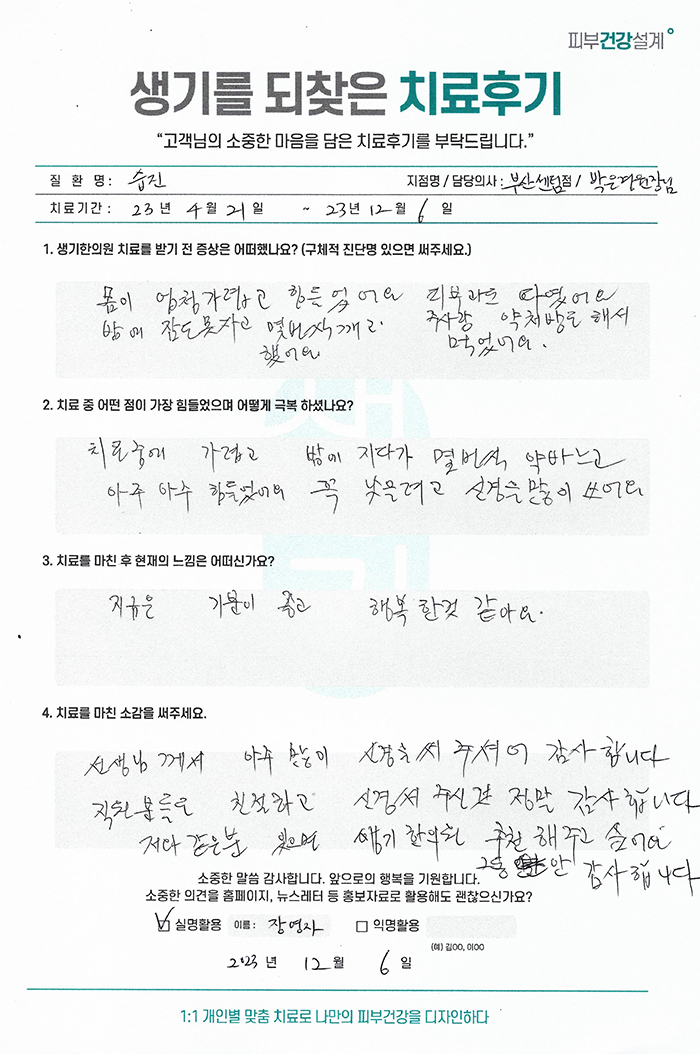 피부건강설계
생기를 되찾은 치료후기
“고객님의 소중한 마음을 담은 치료후기를 부탁드립니다.”
질 환 명: 습진 지점명 / 담당의사 : 부산센텀점 / 박은 원장님
치료기간 : 23 년 4 월 21 일 ~ 23 년 12 월 6 일
1. 생기한의원 치료를 받기 전 증상은 어떠했나요? (구체적 진단명 있으면 써주세요.)
몸이 엄청가렵고 힘들었어요 피부과도 다녔어요
밤에 잠도못자고 몇번씩깨고 주사랑 약처방도 해서
했어요 먹었어요.
2. 치료 중 어떤 점이 가장 힘들었으며 어떻게 극복 하셨나요?
치료중에 가렵고 밤에 자다가 몇번씩 약바르고
아주 아주 힘들었어요 꼭 낫을려고 신경을많이 쓰어요
3. 치료를 마친 후 현재의 느낌은 어떠신가요?
지금은 기분이 좋고 행복한것 같아요.
4. 치료를 마친 소감을 써주세요.
선생님께서 아주 많이 신경을써 주셔어 감사합니다
직원분들도 친절하고 신경써 주신건 정말 감사합니다
저다 같은분 있으면 생기한의원 추천해주고 싶어요
그동안 감사합니다
소중한 말씀 감사합니다. 앞으로의 행복을 기원합니다.
소중한 의견을 홈페이지, 뉴스레터 등 홍보자료로 활용해도 괜찮으신가요?
실명활용 이름 : 장영자 익명활용
(예) 김OO, 이OO
2023 년 12 월 6 일
1:1 개인별 맞춤 치료로 나만의 피부건강을 디자인하다